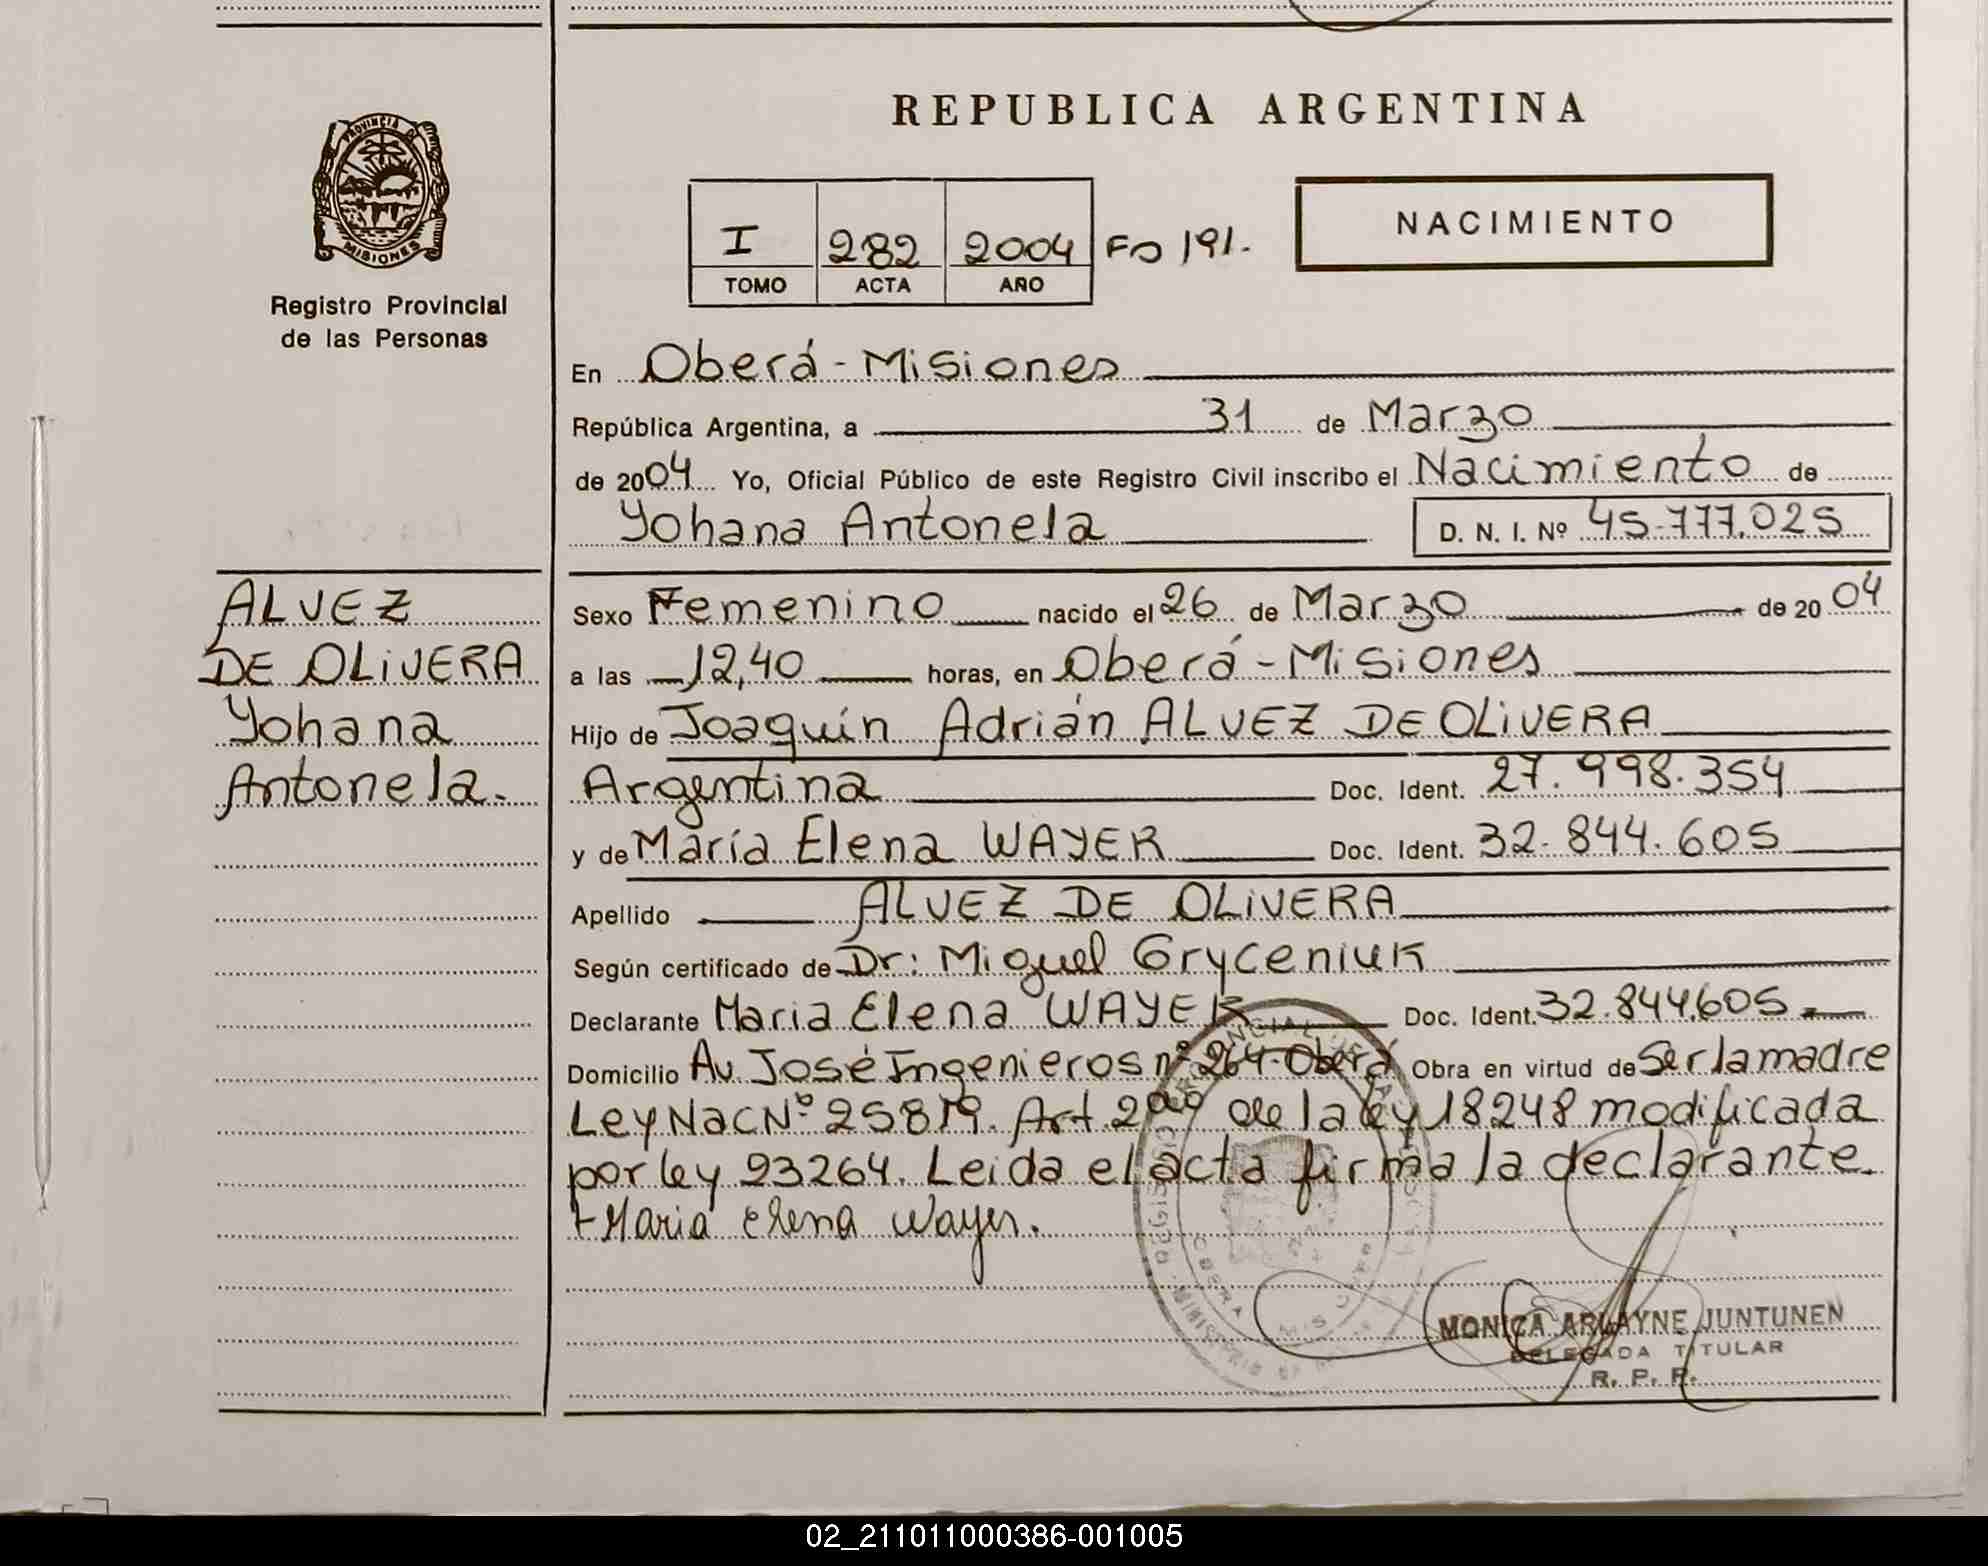 PROVINCIA DE
MISIONES
Registro Provincial
de las Personas
REPUBLICA ARGENTINA
I 282 2004 Fo 191.
TOMO ACTA AÑO
NACIMIENTO
En Oberá - Misiones
República Argentina, a 31 de Marzo
de 2004 Yo, Oficial Público de este Registro Civil inscribo el Nacimiento de
Yohana Antonela D. N. I. Nº 45.777.025
ALVEZ
DE OLIVERA
Yohana
Antonela.
Sexo Femenino nacido el 26 de Marzo de 2004
a las 12,40 horas, en Oberá - Misiones
Hijo de Joaquín Adrián ALVEZ DE OLIVERA
Argentina Doc. Ident. 27.998.354
y de María Elena WAYER Doc. Ident. 32.844.605
Apellido ALVEZ DE OLIVERA
Según certificado de Dr: Miguel Gryceniuk
Declarante Maria Elena WAYER Doc. Ident. 32.844.605
Domicilio Av. José Ingenieros nº 264-Oberá Obra en virtud de Ser la madre
Ley Nac Nº 25819. Art. 2do de la ley 18248 modificada
por ley 23264. Leida el acta firma la declarante.
+Maria elena wayer.
MONICA ARLAYNE JUNTUNEN
DELEGADA TITULAR
R. P. P.
02_211011000386-001005